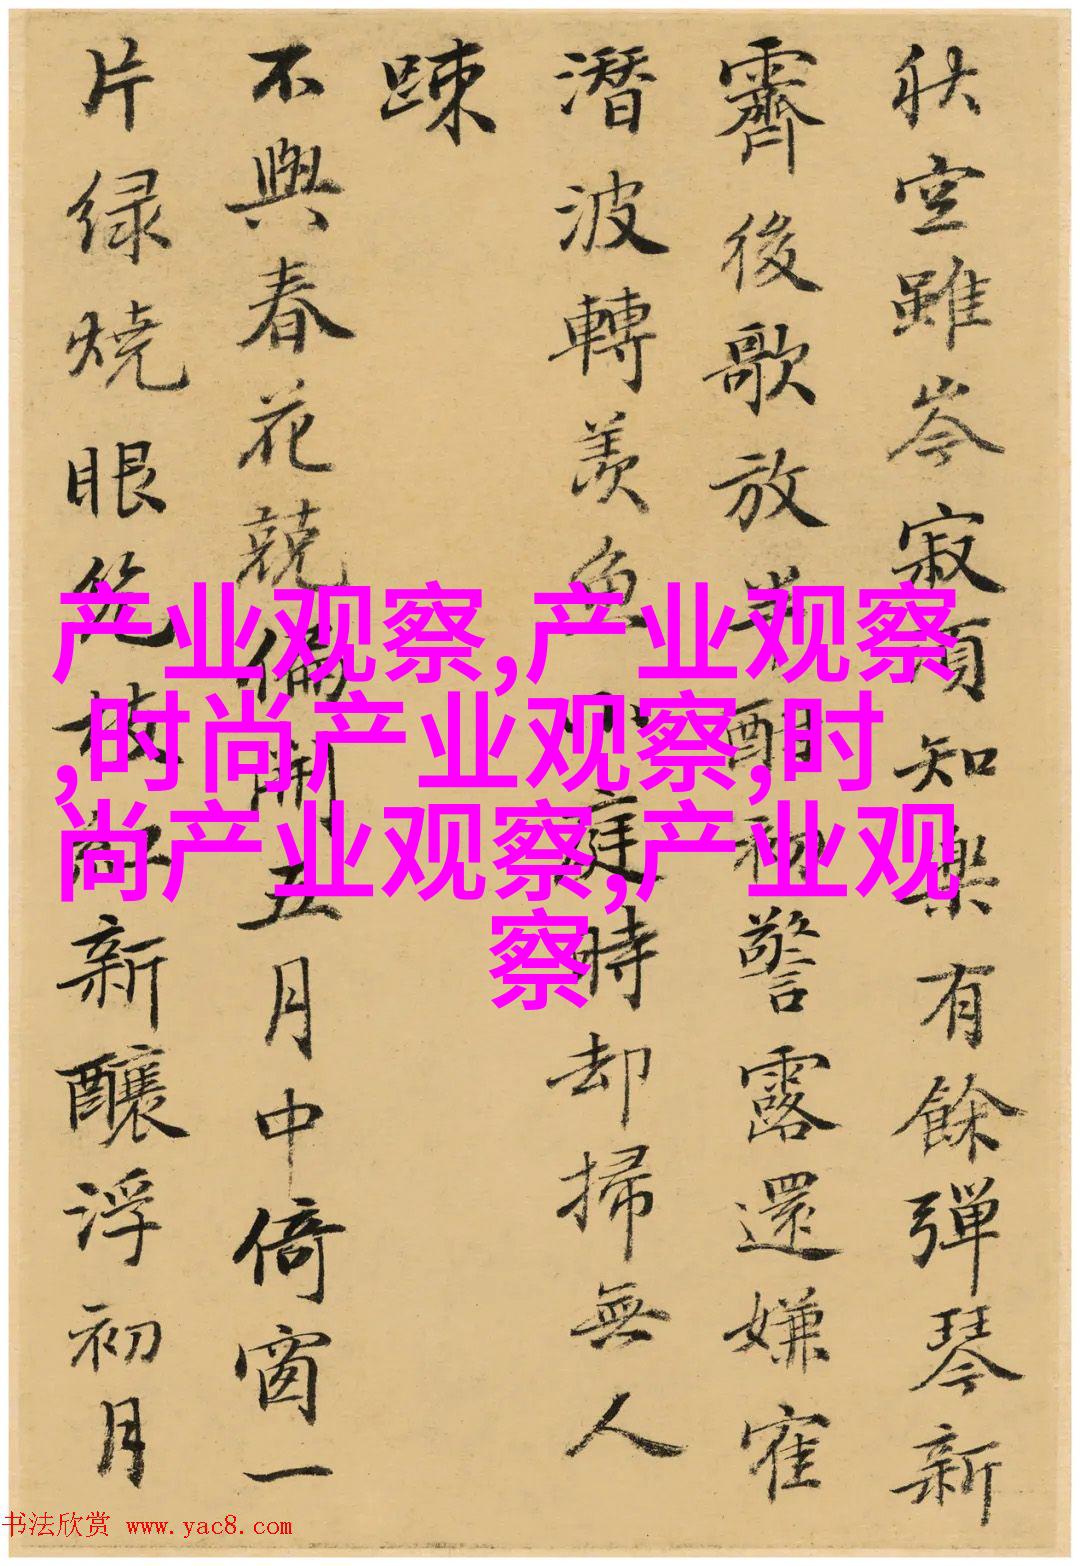 秋空雖岑寂須知樂有餘彈琴新
霽後歌放半酣初警露還嫌寉
潛波轉羨魚小庭時却掃無人
踈
不與春花競開五月中倚窗一
片绿燒眼枝紅新釀浮初月
产业观察,产业观察
,时尚产业观察,时
尚产业观察,产业观
察
书法欣赏 www.yac8.com